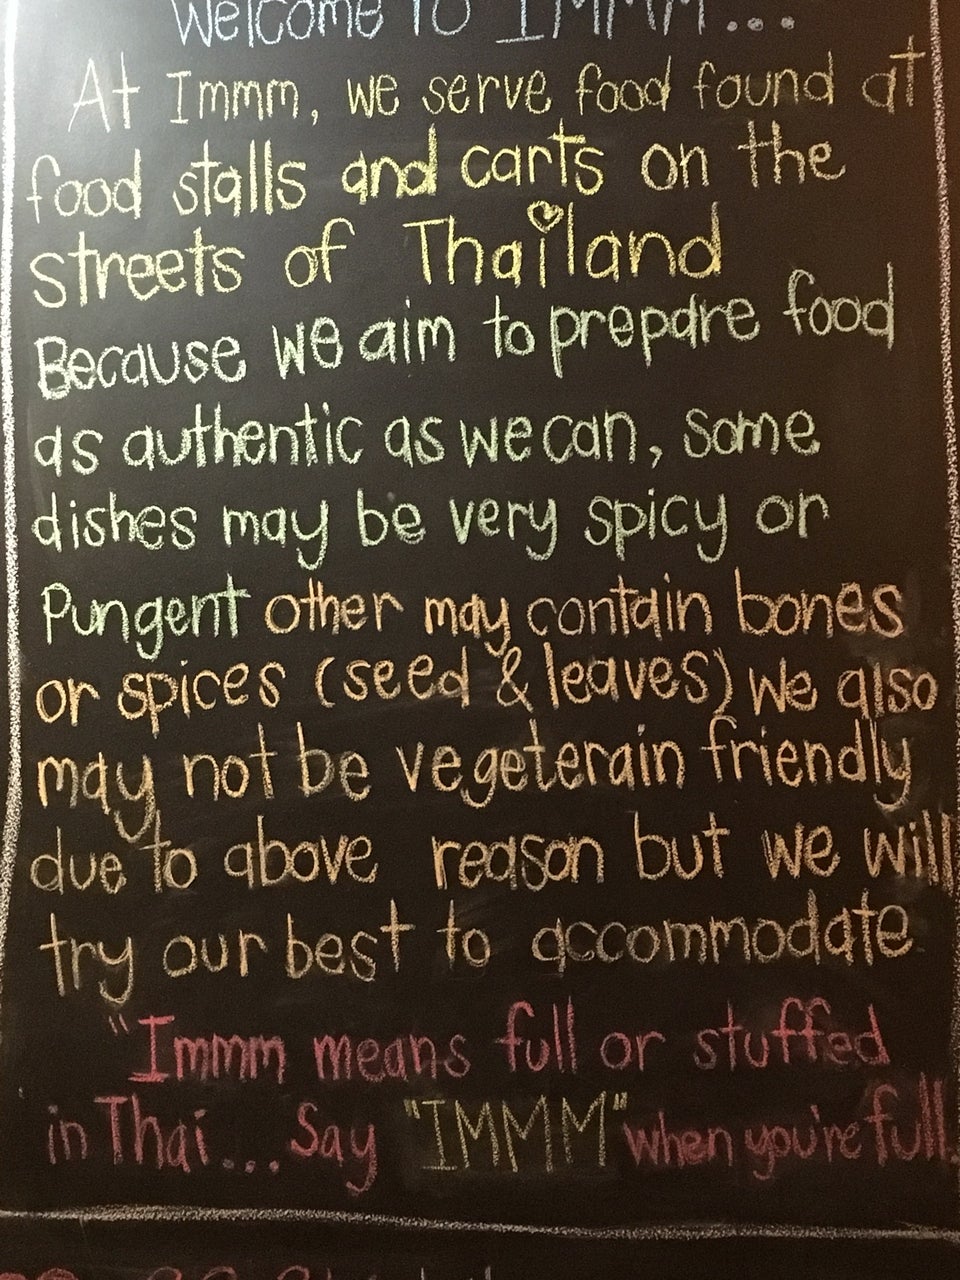 Welcome to IMMM...
At Immm, we serve food found at
food stalls and carts on the
streets of Thailand
Because we aim to prepare food
as authentic as we can, some
dishes may be very spicy or
Pungent other may contain bones
or spices (seed & leaves) we also
may not be vegeterain friendly
due to above reason but we will
try our best to accommodate
"Immm means full or stuffed
in Thai... Say "IMMM" when you're full.